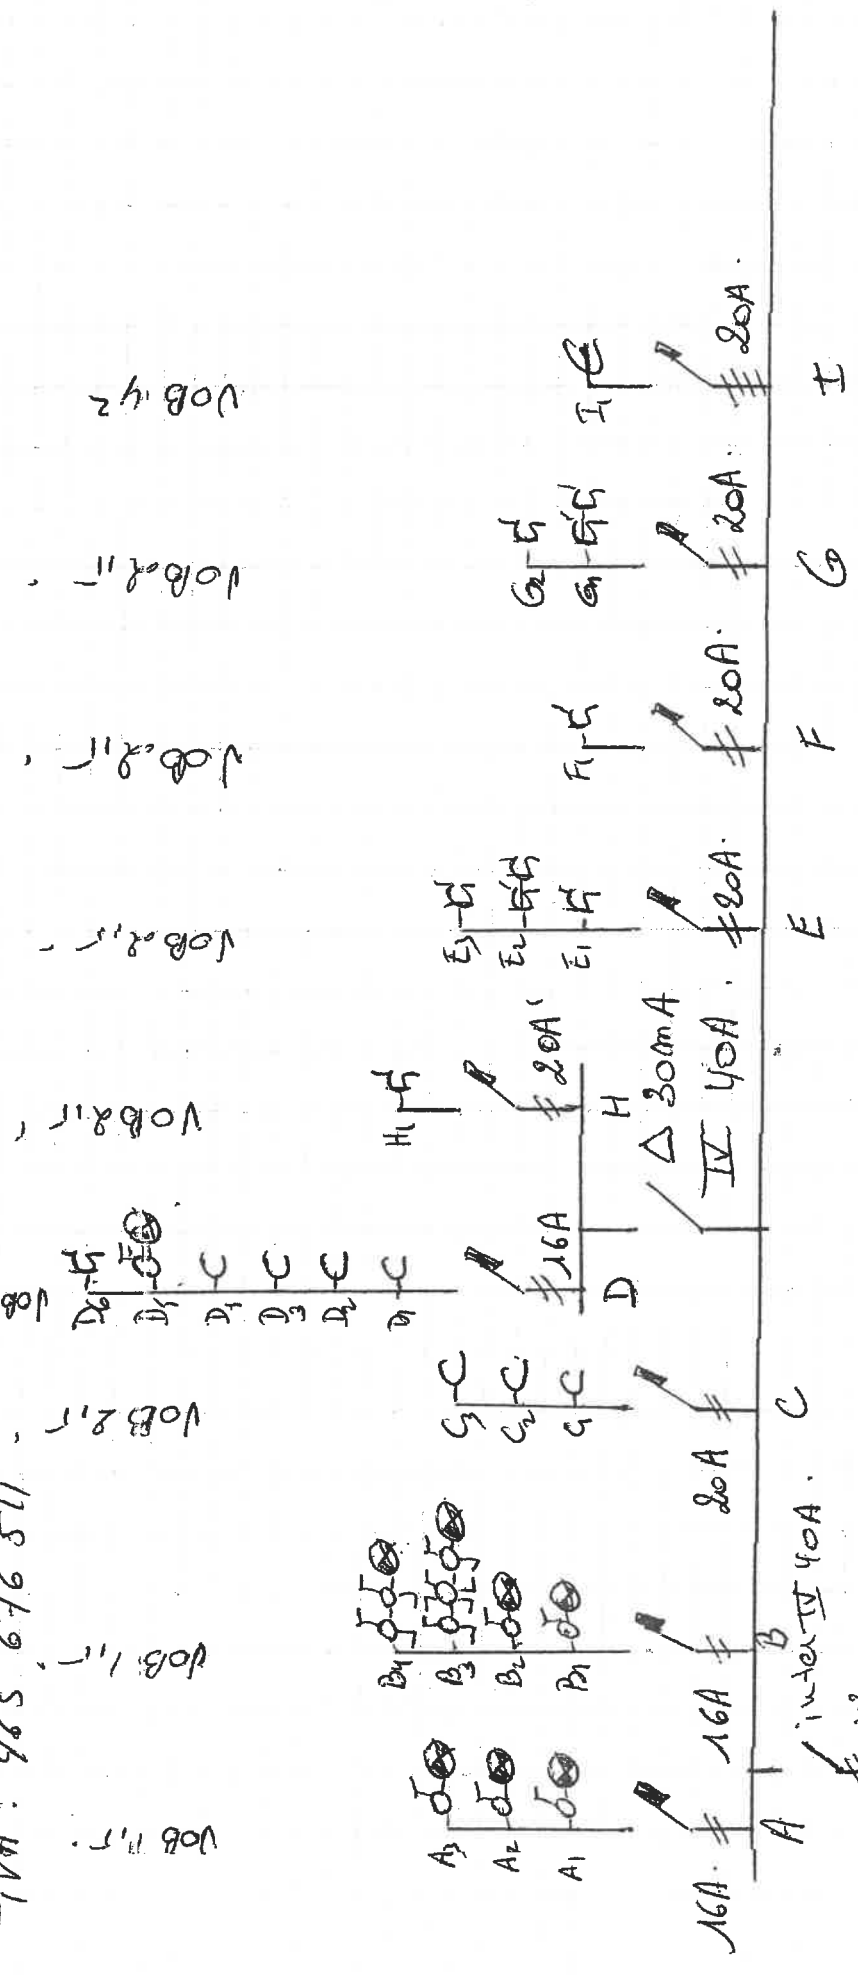 TVA : 465 676 511
VOB 1,5
VOB 1,5
VOB 2,5
VOB
VOB 2,5
VOB 2,5
VOB 2,5
VOB 2,5
VOB 4²
A3
A2
A1
B4
B3
B2
B1
C3
C2
C1
D6
D5
D4
D3
D2
D1
H1
E3
E2
E1
F1
G2
G1
I1
16A.
16A
20A
16A
20A
Δ 30mA
IV 40A.
20A.
20A.
20A.
20A.
A
B
C
D
H
E
F
G
I
inter IV 40A.